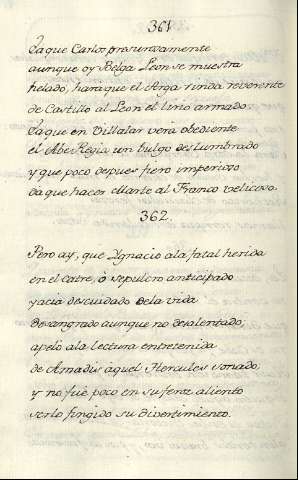 361
Ya que Carlos presurosamente
aunque oy Belga Leon se muestra
helado, hara que el Arga rinda reverente
de Castilla al Leon el lirio armado.
Ya que en Villalar vera obediente
el Abe Regia un bulgo deslumbrado
y que poco depues fiero imperioso
da que hacer Marte al Franco velicoso.
362.
Pero ay, que Ygnacio ala fatal herida
en el catre, ò sepulcro anticipado
yacia descuidado de la vida
desangrado aunque no desalentado,
apelo ala lectura entretenida
de Amadis aquel Hercules sonado;
y no fuè poco en su feroz aliento
serlo fingido su divertimiento.